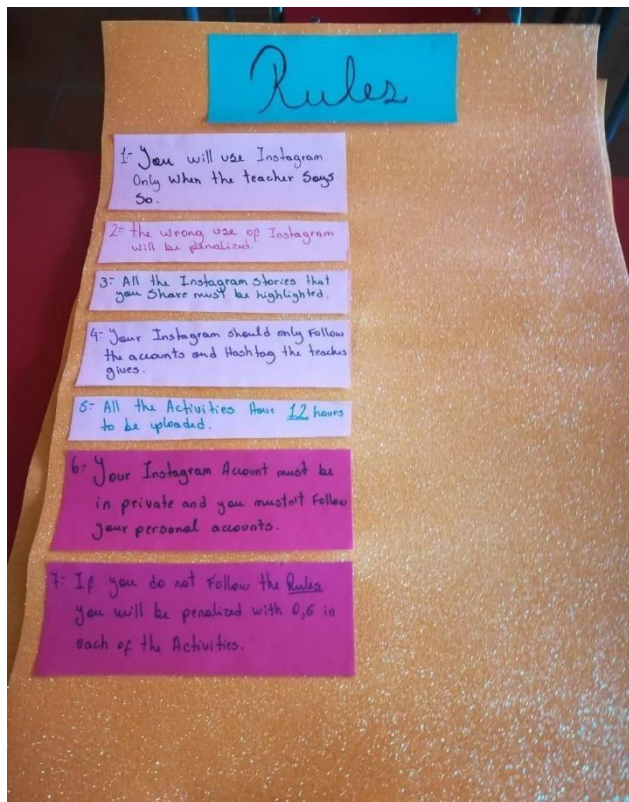 Rules
1- You will use Instagram
Only when the teacher says
So.
2- the wrong use of Instagram
will be penalized.
3- All the Instagram stories that
you Share must be highlighted.
4- Your Instagram should only Follow
the accounts and Hashtag the teacher
gives.
5- All the Activities Have 12 hours
to be uploaded.
6- Your Instagram Account must be
in private and you mustn't Follow
your personal accounts.
7- If you do not Follow the Rules
you will be penalized with 0,5 in
each of the Activities.